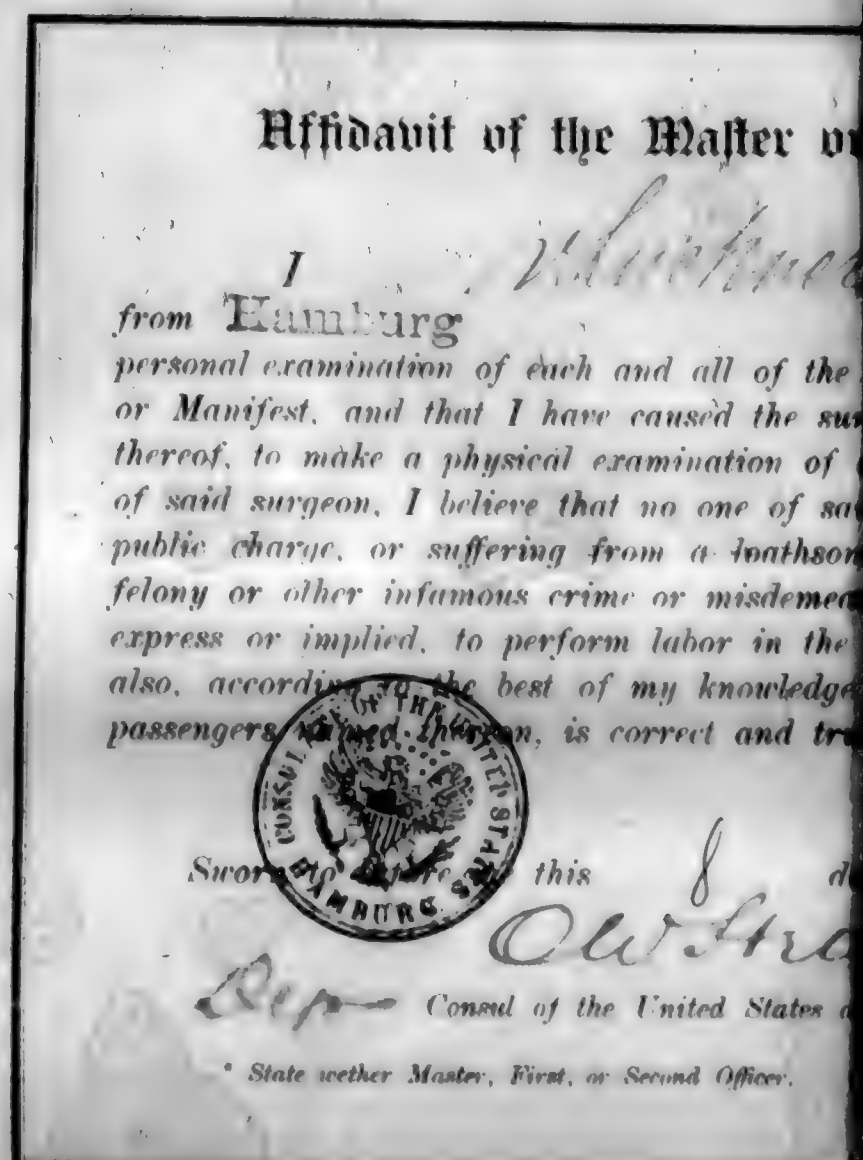 Affidavit of the Master or
I
from Hamburg
personal examination of each and all of the
or Manifest, and that I have caused the sur
thereof, to make a physical examination of
of said surgeon, I believe that no one of sa
public charge, or suffering from a loathsom
felony or other infamous crime or misdemea
express or implied, to perform labor in the
also, according to the best of my knowledge
passengers named thereon, is correct and tru
CONSULATE OF THE UNITED STATES
HAMBURG
Sworn to before me this 8 d
O W
Dep Consul of the United States a
* State wether Master, First, or Second Officer.